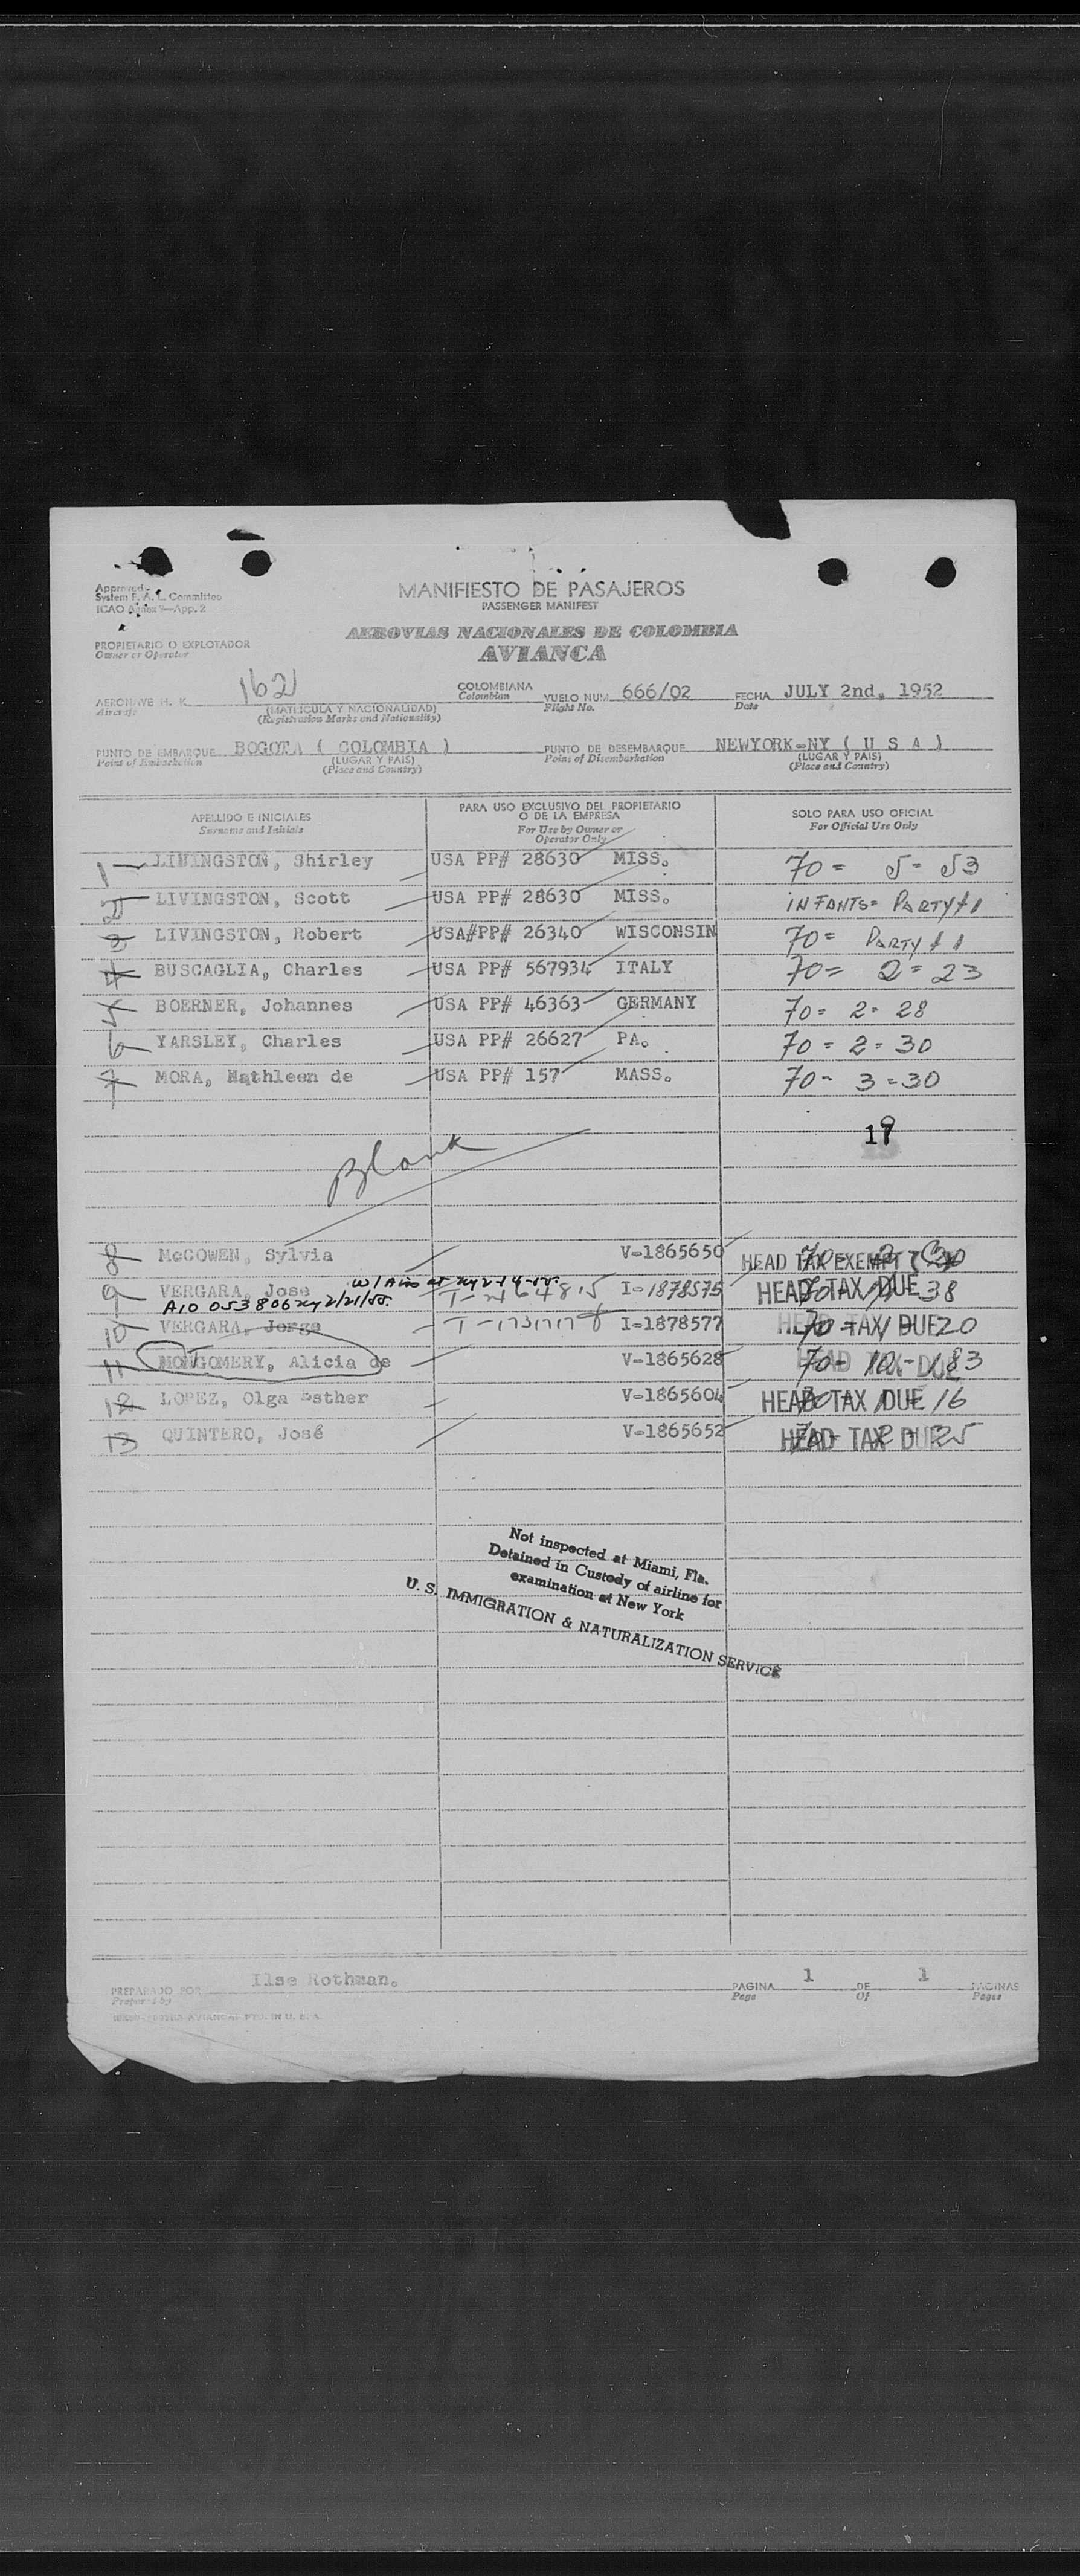 Approved
System F. A. L. Committee
ICAO Annex 9—App. 2
MANIFIESTO DE PASAJEROS
PASSENGER MANIFEST
PROPIETARIO O EXPLOTADOR
Owner or Operator
AEROVIAS NACIONALES DE COLOMBIA
AVIANCA
AERONAVE H. K. 162 COLOMBIANA VUELO NUM. 666/02 FECHA JULY 2nd, 1952
Aircraft (MATRICULA Y NACIONALIDAD) Colombian Flight No. Date
(Registration Marks and Nationality)
PUNTO DE EMBARQUE BOGOTA ( COLOMBIA ) PUNTO DE DESEMBARQUE NEWYORK-NY ( U S A )
Point of Embarkation (LUGAR Y PAIS) Point of Disembarkation (LUGAR Y PAIS)
(Place and Country) (Place and Country)
APELLIDO E INICIALES PARA USO EXCLUSIVO DEL PROPIETARIO O DE LA EMPRESA SOLO PARA USO OFICIAL
Surname and Initials For Use by Owner or Operator Only For Official Use Only
1 LIVINGSTON, Shirley USA PP# 28630 MISS. 70 = 5 - 53
2 LIVINGSTON, Scott USA PP# 28630 MISS. INFANTS= PARTY #1
3 LIVINGSTON, Robert USA#PP# 26340 WISCONSIN 70= PARTY #1
4 BUSCAGLIA, Charles USA PP# 567934 ITALY 70= 2 = 23
5 BOERNER, Johannes USA PP# 46363 GERMANY 70= 2- 28
6 YARSLEY, Charles USA PP# 26627 PA. 70 = 2 = 30
7 MORA, Kathleen de USA PP# 157 MASS. 70- 3 = 30
Blank
8 McCOWEN, Sylvia V-1865650 HEAD TAX EXEMPT
9 VERGARA, Jose I-1878575 HEAD TAX DUE 38
A10 053806
10 VERGARA, Jorge I-1878577 HEAD TAX DUE 20
11 MONTGOMERY, Alicia de V-1865628 HEAD TAX DUE 70- 83
12 LOPEZ, Olga Esther V-1865604 HEAD TAX DUE 16
13 QUINTERO, José V-1865652 HEAD TAX DUE
Not inspected at Miami, Fla.
Detained in Custody of airline for
examination at New York
U. S. IMMIGRATION & NATURALIZATION SERVICE
PREPARADO POR Ilse Rothman. PAGINA 1 DE 1 PAGINAS
Prepared by Page Of Pages